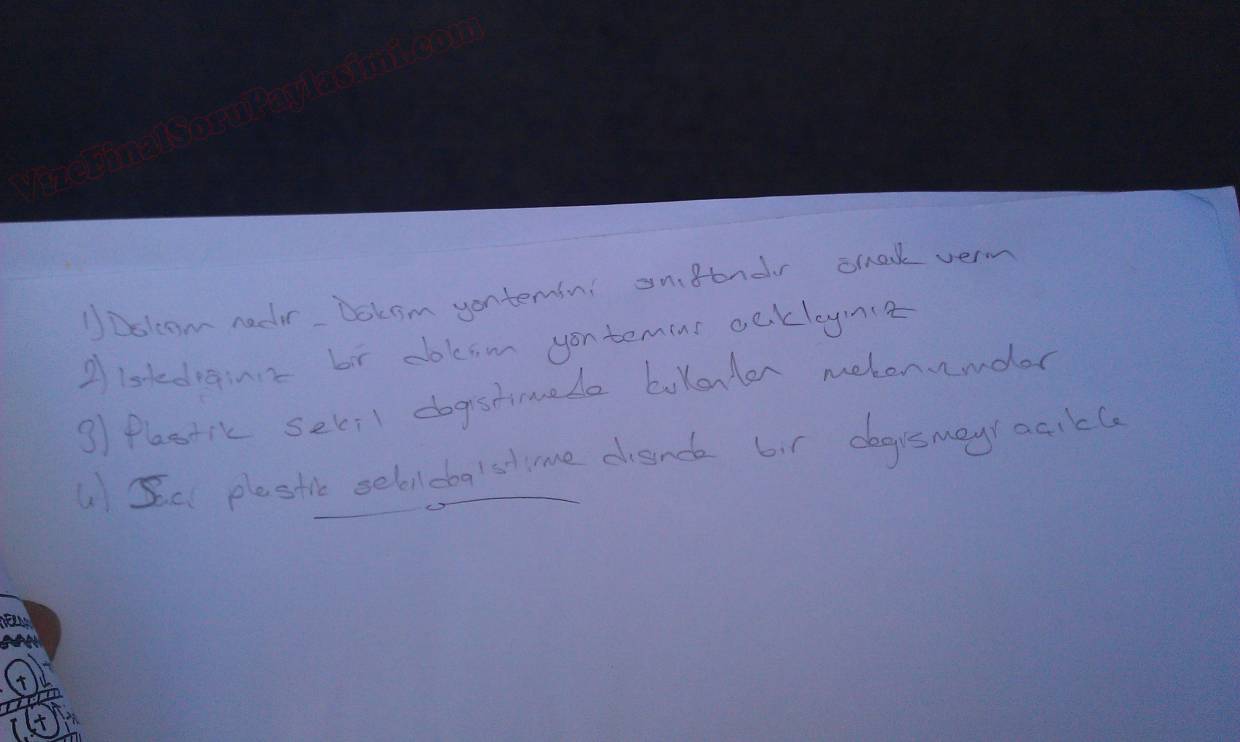 VizeFinalSoruPaylasimi.com
1) Döküm nedir - Döküm yöntemini sınıflandır örnek verin
2) İstediğiniz bir döküm yöntemini açıklayınız
3) Plastik sekil degistirmede kullanılan mekanizmalar
4) plastik sekil degistirme disinda bir degismeyi acıkla